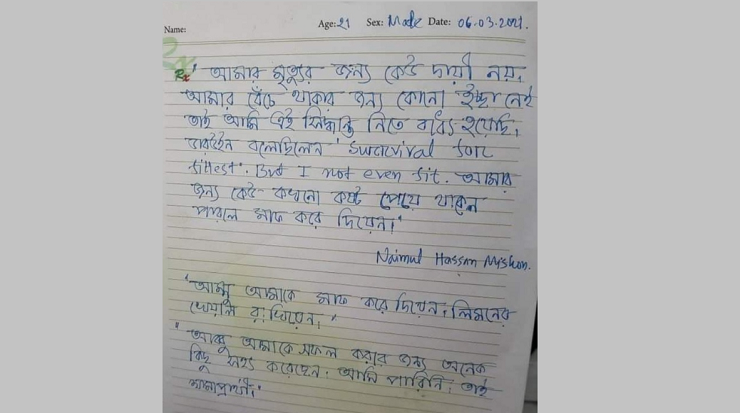 Name: Age: 21 Sex: Male Date: 06.03.2021.
Rx 'আমার মৃত্যুর জন্য কেউ দায়ী নয়,
আমার বেঁচে থাকার জন্য কোনো ইচ্ছা নেই
তাই আমি এই সিদ্ধান্ত নিতে বাধ্য হয়েছি,
ডারউইন বলেছিলেন 'Survival for
fittest'. But I not even fit. আমার
জন্য কেউ কখনো কষ্ট পেয়ে থাকেন
পারলে মাফ করে দিয়েন।'
Naimul Hassan Mishon.
'আম্মু আমাকে মাফ করে দিয়েন, লিমনের
খেয়াল রাখিয়েন,'
'আব্বু আমাকে সফল করার জন্য অনেক
কিছু সহ্য করেছেন, আমি পারিনি, তাই
ক্ষমাপ্রার্থী'